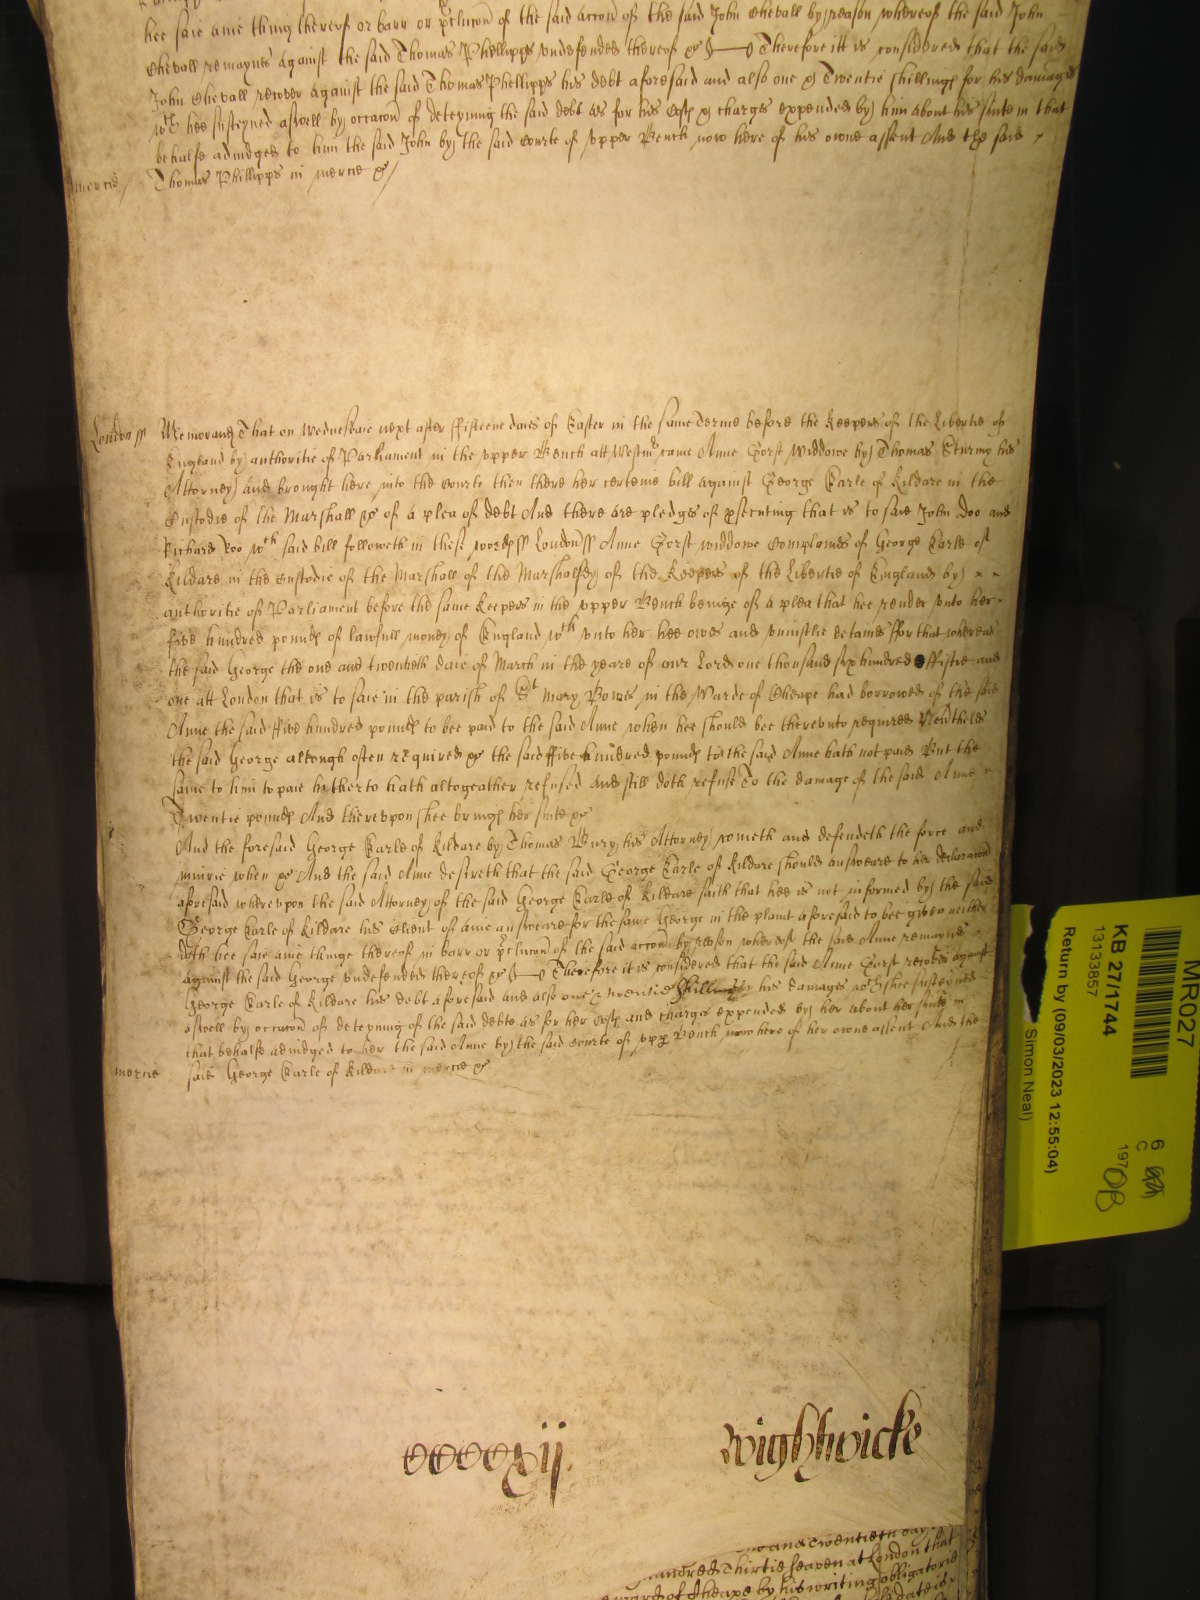 hee saie anie thing thereof or barr or pclucon of the said accon of the said John Chevall by reason whereof the said John
Chevall remaynes against the said Thomas Phellipps undefended thereof &c Therefore itt is considered that the said
John Chevall recover against the said Thomas Phellipps his debt aforesaid and also one & Twentie shillings for his damages
wch hee susteyned aswell by occacon of deteyning the said debt as for his costs & charges expended by him about his suite in that
behalfe adiudged to him the said John by the said Courte of upper Bench now here of his owne assent And the said
mercie Thomas Phillipps in mercie &c
London ss Memorand That on Wednesdaie next after ffifteene daies of Easter in the same Terme before the Keepers of the Libertie of
England by authoritie of Parliament in the upper Bench att Westmr came Anne Gorst Widdowe by Thomas Sturmy his
Attorney And brought here into the Courte then there her certeine bill against George Earle of Kildare in the
Custodie of the Marshall &c of a plea of debt And there are pledges of psecuting that is to saie John Doo and
Richard Roo wch said bill followeth in these words ss London ss Anne Gorst widdowe complaines of George Earle of
Kildare in the Custodie of the Marshall of the Marshalsey of the Keepers of the Libertie of England by
authoritie of Parliament before the same Keepers in the upper Bench beinge of a plea that hee render unto her
five hundred pounds of lawfull money of England wch unto her hee owes and uniustlie detaines ffor that whereas
the said George the one and twentieth daie of March in the yeare of our Lord one thousand six hundred ffiftie and
one att London that is to saie in the parish of St Mary Bowe in the Warde of Cheape had borrowed of the said
Anne the said ffive hundred pounds to bee paid to the said Anne when hee should bee thereunto required Neatheles
the said George altough often required &c the said ffive hundred pounds to the said Anne hath not paid But the
same to him to paie hitherto hath altogeather refused And still doth refuse To the damage of the said Anne
Twentie pounds And thereupon shee brings her suite &c
And the foresaid George Earle of Kildare by Thomas Bury his Attorney cometh and defendeth the force and
iniurie when &c And the said Anne desireth that the said George Earle of Kildare should answeare to her declaracon
aforesaid whereupon the said Attorney of the said George Earle of Kildare saith that hee is not informed by the said
George Earle of Kildare his Client of anie answeare for the same George in the plaint aforesaid to bee given neither
doth hee saie anie thinge thereof in barr or pclucon of the said accon by reason whereof the said Anne remaynes
against the said George undefended thereof &c Therefore it is considered that the said Anne Gorst recover against
George Earle of Kildare his debt aforesaid and also one & twentie shillings for his damages wch shee susteyned
aswell by occacon of deteyning of the said debte as for her costs and charges expended by her about her suite in
that behalfe adiudged to her the said Anne by the said Courte of upp Bench now here of her owne assent And the
mercie said George Earle of Kildare in mercie &c
CCCCxij
Wightwicke
and Twentieth day
hundred Thirtie seaven at London that
ward of Cheape by his writing obligatorie
MR027
KB 27/1744
13133857
Return by (09/03/2023 12:55:04)
Simon Neal)
6
C
197